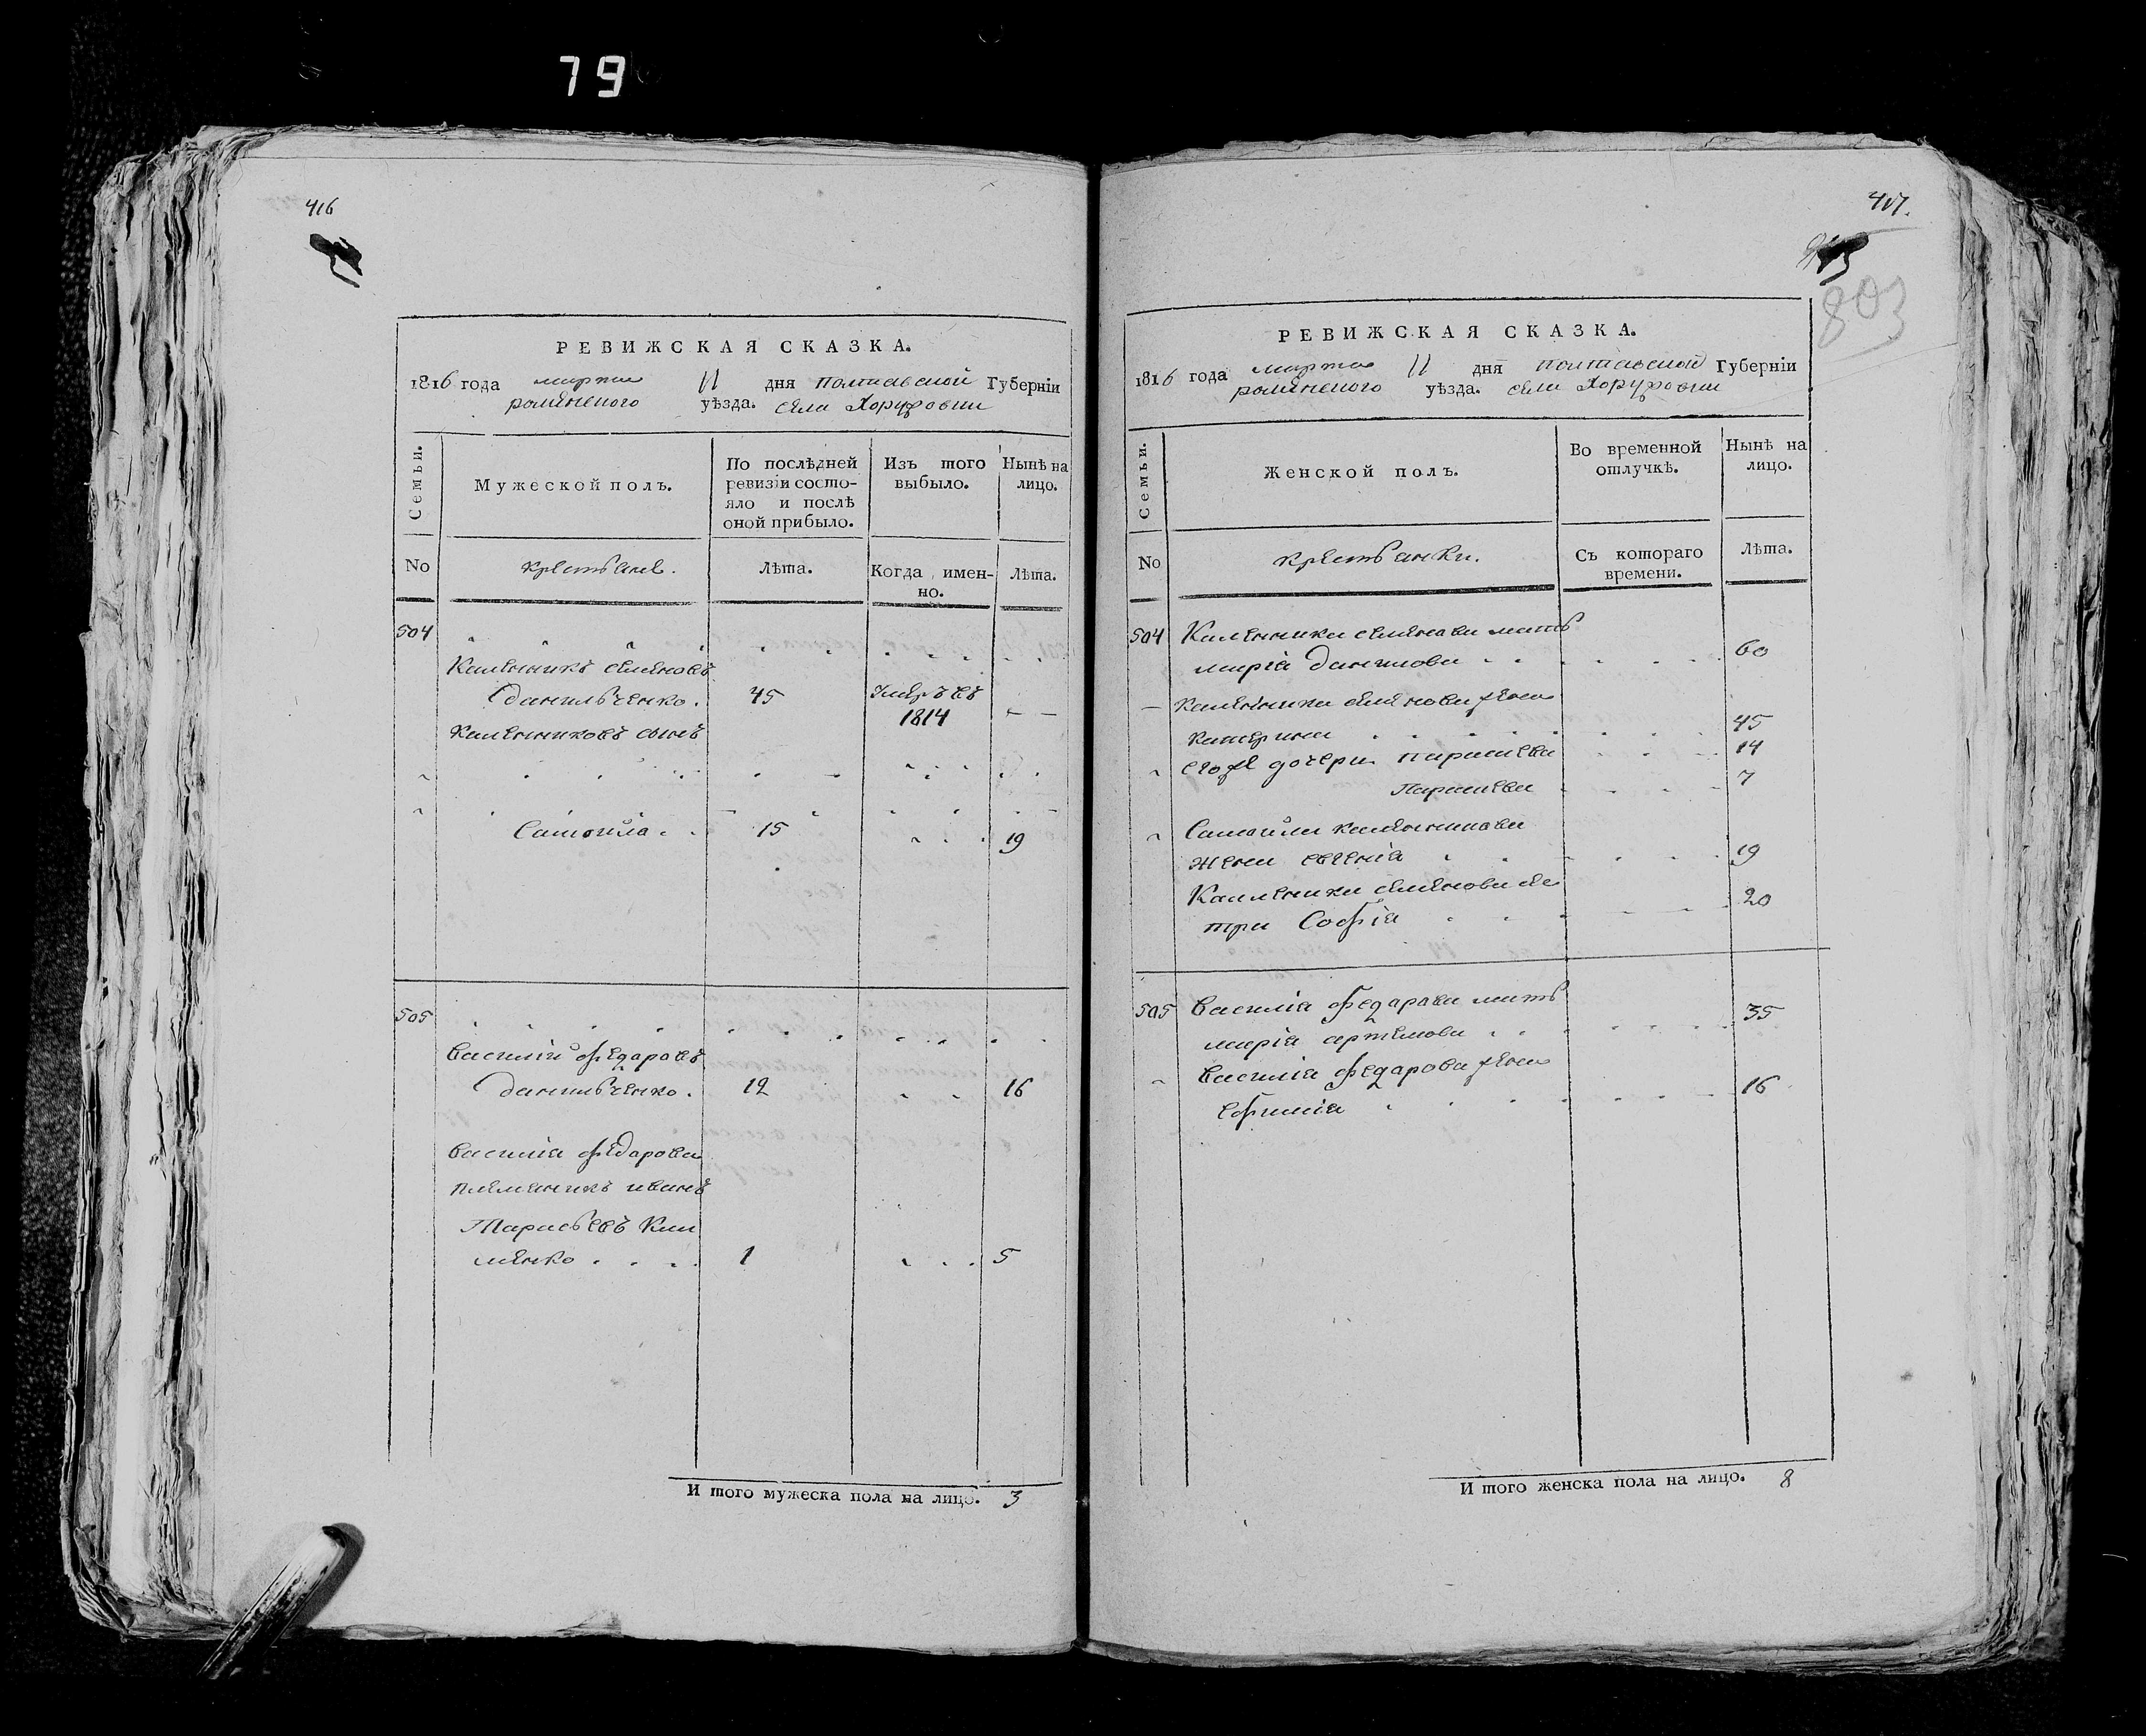 79
416
РЕВИЖСКАЯ СКАЗКА.
1816 года марта 11 дня полтавской Губерніи
роменского уѣзда. села Хоружовки
Семьи.
Мужеской полъ.
По послѣдней ревизіи состо-
яло и послѣ оной прибыло.
Изъ того выбыло.
Нынѣ на лицо.
No
крестьяне.
Лѣта.
Когда имен-
но.
Лѣта.
504
Каленникъ семеновъ
Данильченко. 45
1814
Каленниковъ сынъ
Самойла 15 19
505
Василій федаровъ
Данильченко. 12 16
Василія федарова
племеникъ иванъ
Тарасьевъ Кли
менко 1 5
И того мужеска пола на лицо. 3
417.
803
РЕВИЖСКАЯ СКАЗКА.
1816 года марта 11 дня полтавской Губерніи
роменского уѣзда. села Хоружовки
Семьи.
Женской полъ.
Во временной отлучкѣ.
Нынѣ на лицо.
No
крестьянки.
Съ котораго времени.
Лѣта.
504 Каленника семенова мать
марія данилова 60
Каленника семенова жена
катерина 45
егоже дочери парасковья 14
7
Самойли каленникова
жена евгенія 19
Каленника семенова сес
тра Софія 20
505 Василія федарова мать
марія артемова 35
Василія федарова жена
ефимія 16
И того женска пола на лицо. 8